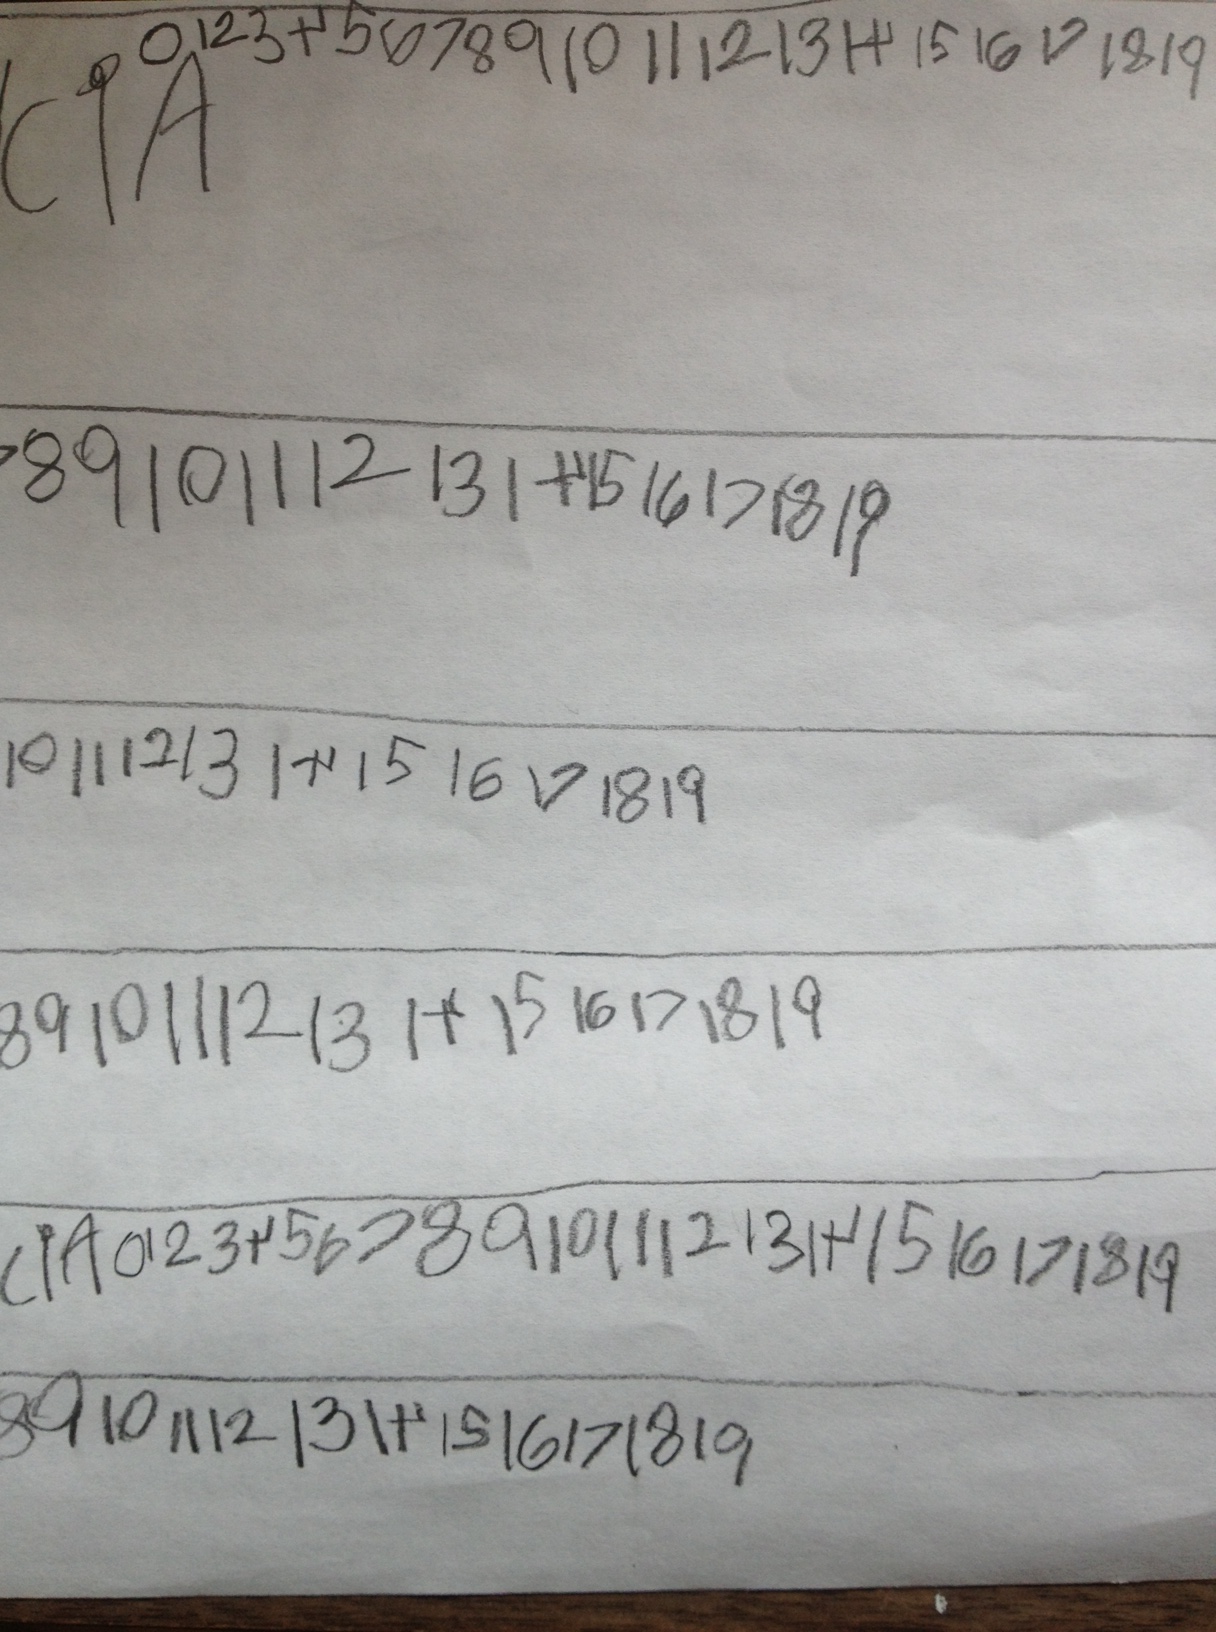 CIA 0 1 2 3 4 5 6 7 8 9 10 11 12 13 14 15 16 17 18 19
7 8 9 10 11 12 13 14 15 16 17 18 19
10 11 12 13 14 15 16 17 18 19
8 9 10 11 12 13 14 15 16 17 18 19
CIA 0 1 2 3 4 5 6 7 8 9 10 11 12 13 14 15 16 17 18 19
8 9 10 11 12 13 14 15 16 17 18 19